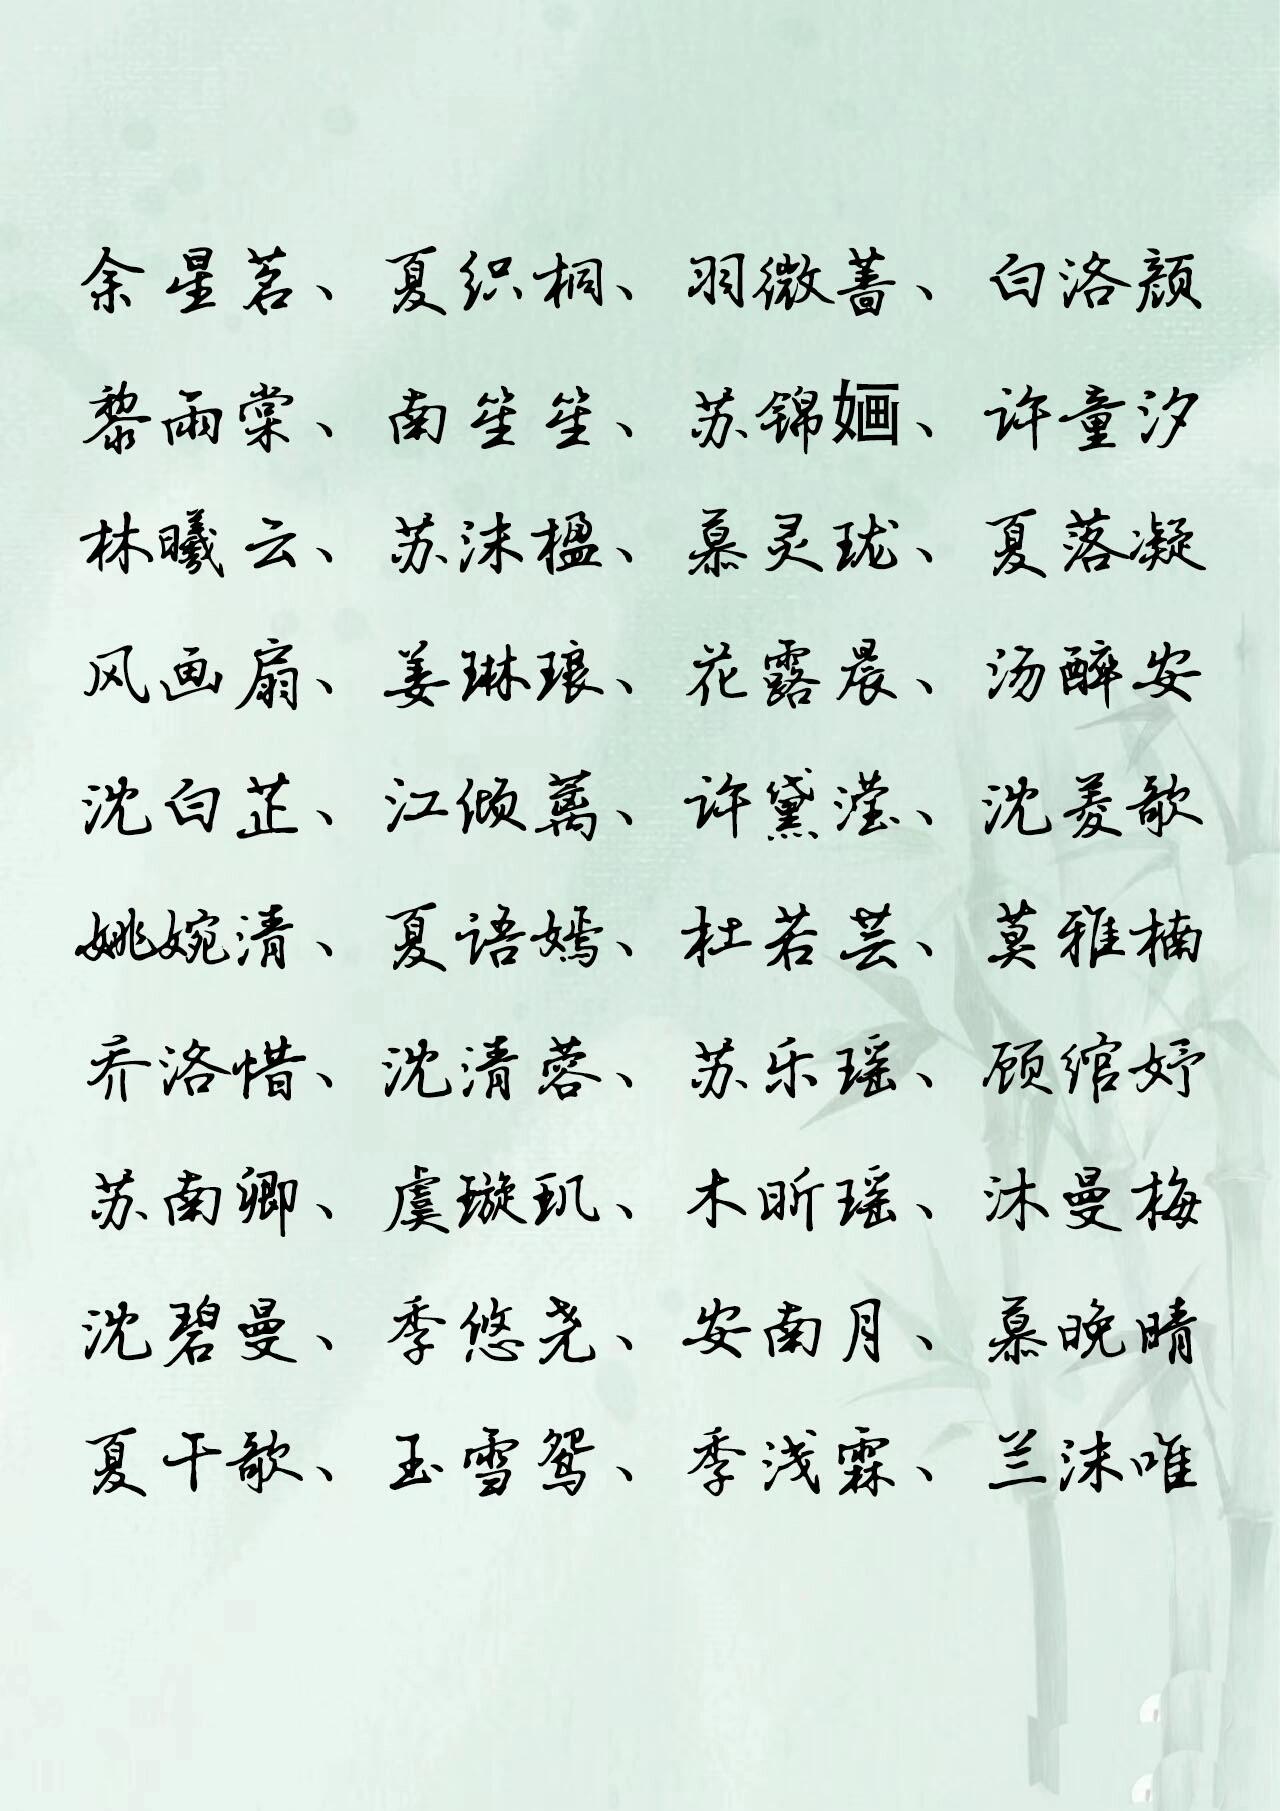 余星茗、夏织桐、羽微蔷、白洛颜
黎雨棠、南笙笙、苏锦婳、许童汐
林曦云、苏沫楹、慕灵珑、夏落凝
风画扇、姜琳琅、花露晨、汤醉安
沈白芷、江倾蓠、许黛滢、沈菱歌
姚婉清、夏语嫣、杜若芸、莫雅楠
乔洛惜、沈清蓉、苏乐瑶、顾绾妤
苏南卿、虞璇玑、木昕瑶、沐曼梅
沈碧曼、季悠尧、安南月、慕晚晴
夏千歌、玉雪鸳、季浅霖、兰沫唯